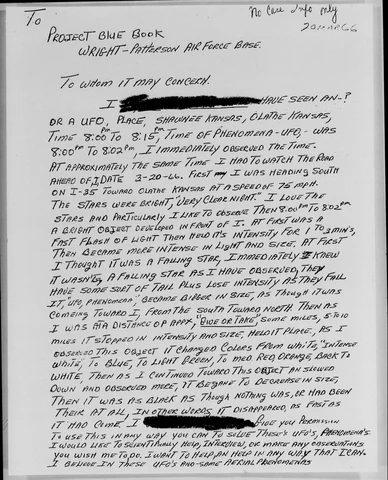 To
No Case Info only
20 MAR 66
PROJECT BLUE BOOK
WRIGHT-PATTERSON AIR FORCE BASE.
TO WHOM IT MAY CONCERN.
I HAVE SEEN AN-?
OR A UFO, PLACE, SHAWNEE KANSAS, OLATHE KANSAS,
TIME 8:00 PM TO 8:15 PM, TIME OF PHENOMENA-UFO,- WAS
8:00 PM TO 8:02 PM, I IMMEDIATELY OBSERVED THE TIME.
AT APPROXIMATELY THE SAME TIME I HAD TO WATCH THE ROAD
AHEAD OF I, DATE 3-20-66. FIRST I WAS HEADING SOUTH
ON I-35 TOWARD OLATHE KANSAS AT A SPEED OF 75 MPH.
THE STARS WERE BRIGHT, "VERY CLEAR NIGHT." I LOVE THE
STARS AND PARTICULARLY I LIKE TO OBSERVE THEN 8:00 PM TO 8:02 PM
A BRIGHT OBJECT DEVELOPED IN FRONT OF I. AT FIRST WAS A
FAST FLASH OF LIGHT THEN HELD ITS INTENSITY FOR 1 TO 3 MINS,
THEN BECAME MORE INTENSE IN LIGHT AND SIZE, AT FIRST
I THOUGHT IT WAS A FALLING STAR, IMMEDIATELY I KNEW
IT WASN'T, A FALLING STAR AS I HAVE OBSERVED, THEY
HAVE SOME SORT OF TAIL PLUS LOSE INTENSITY AS THEY FALL
IT, "UFO, PHENOMENA", BECAME BIGGER IN SIZE, AS THOUGH IT WAS
COMING TOWARD I, FROM THE SOUTH TOWARD NORTH. THEN AS
I WAS A DISTANCE OF APPX, "GIVE OR TAKE", SOME MILES, 5 TO 10
MILES IT STOPPED IN INTENSITY AND SIZE, HELD IT PLACE, AS I
OBSERVED THIS OBJECT IT CHANGED COLORS FROM WHITE, "INTENSE
WHITE, TO BLUE, TO LIGHT GREEN, TO MED RED, ORANGE, BACK TO
WHITE. THEN AS I CONTINUED TOWARD THIS OBJECT AN SLOWED
DOWN AND OBSERVED MORE, IT BEGAN TO DECREASE IN SIZE,
THEN IT WAS AS BLACK AS THOUGH NOTHING WAS, OR HAD BEEN
THEIR AT ALL, IN OTHER WORDS, IT DISAPPEARED, AS FAST AS
IT HAD COME. I GIVE YOU PERMISSION
TO USE THIS IN ANY WAY YOU CAN TO SOLVE THESE'S UFO'S, PHENOMENA'S
I WOULD LIKE TO SCIENTIFICALLY HELP, INTERVIEW, OR MAKE ANY OBSERVATIONS
YOU WISH ME TO DO. I WANT TO HELP AN HELP IN ANY WAY THAT I CAN.
I BELIEVE IN THESE UFO'S AND SOME AERIAL PHENOMENAS